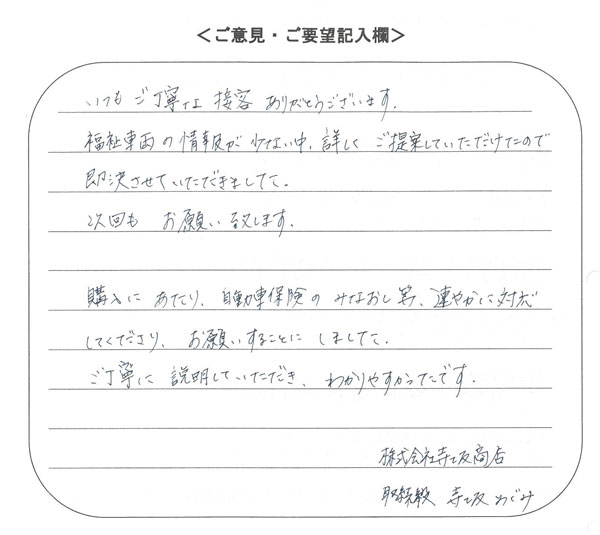 ＜ご意見・ご要望記入欄＞
いつも ご丁寧な 接客 ありがとうございます。
福祉車両の情報が少ない中、詳しく ご提案していただけたので
即決させていただきました。
次回も お願い致します。
購入に あたり、自動車保険の みなおし等、速やかに対応
してくださり、お願いすることに しました。
ご丁寧に 説明していただき、わかりやすかったです。
株式会社寺坂商店
取締役 寺坂 めぐみ